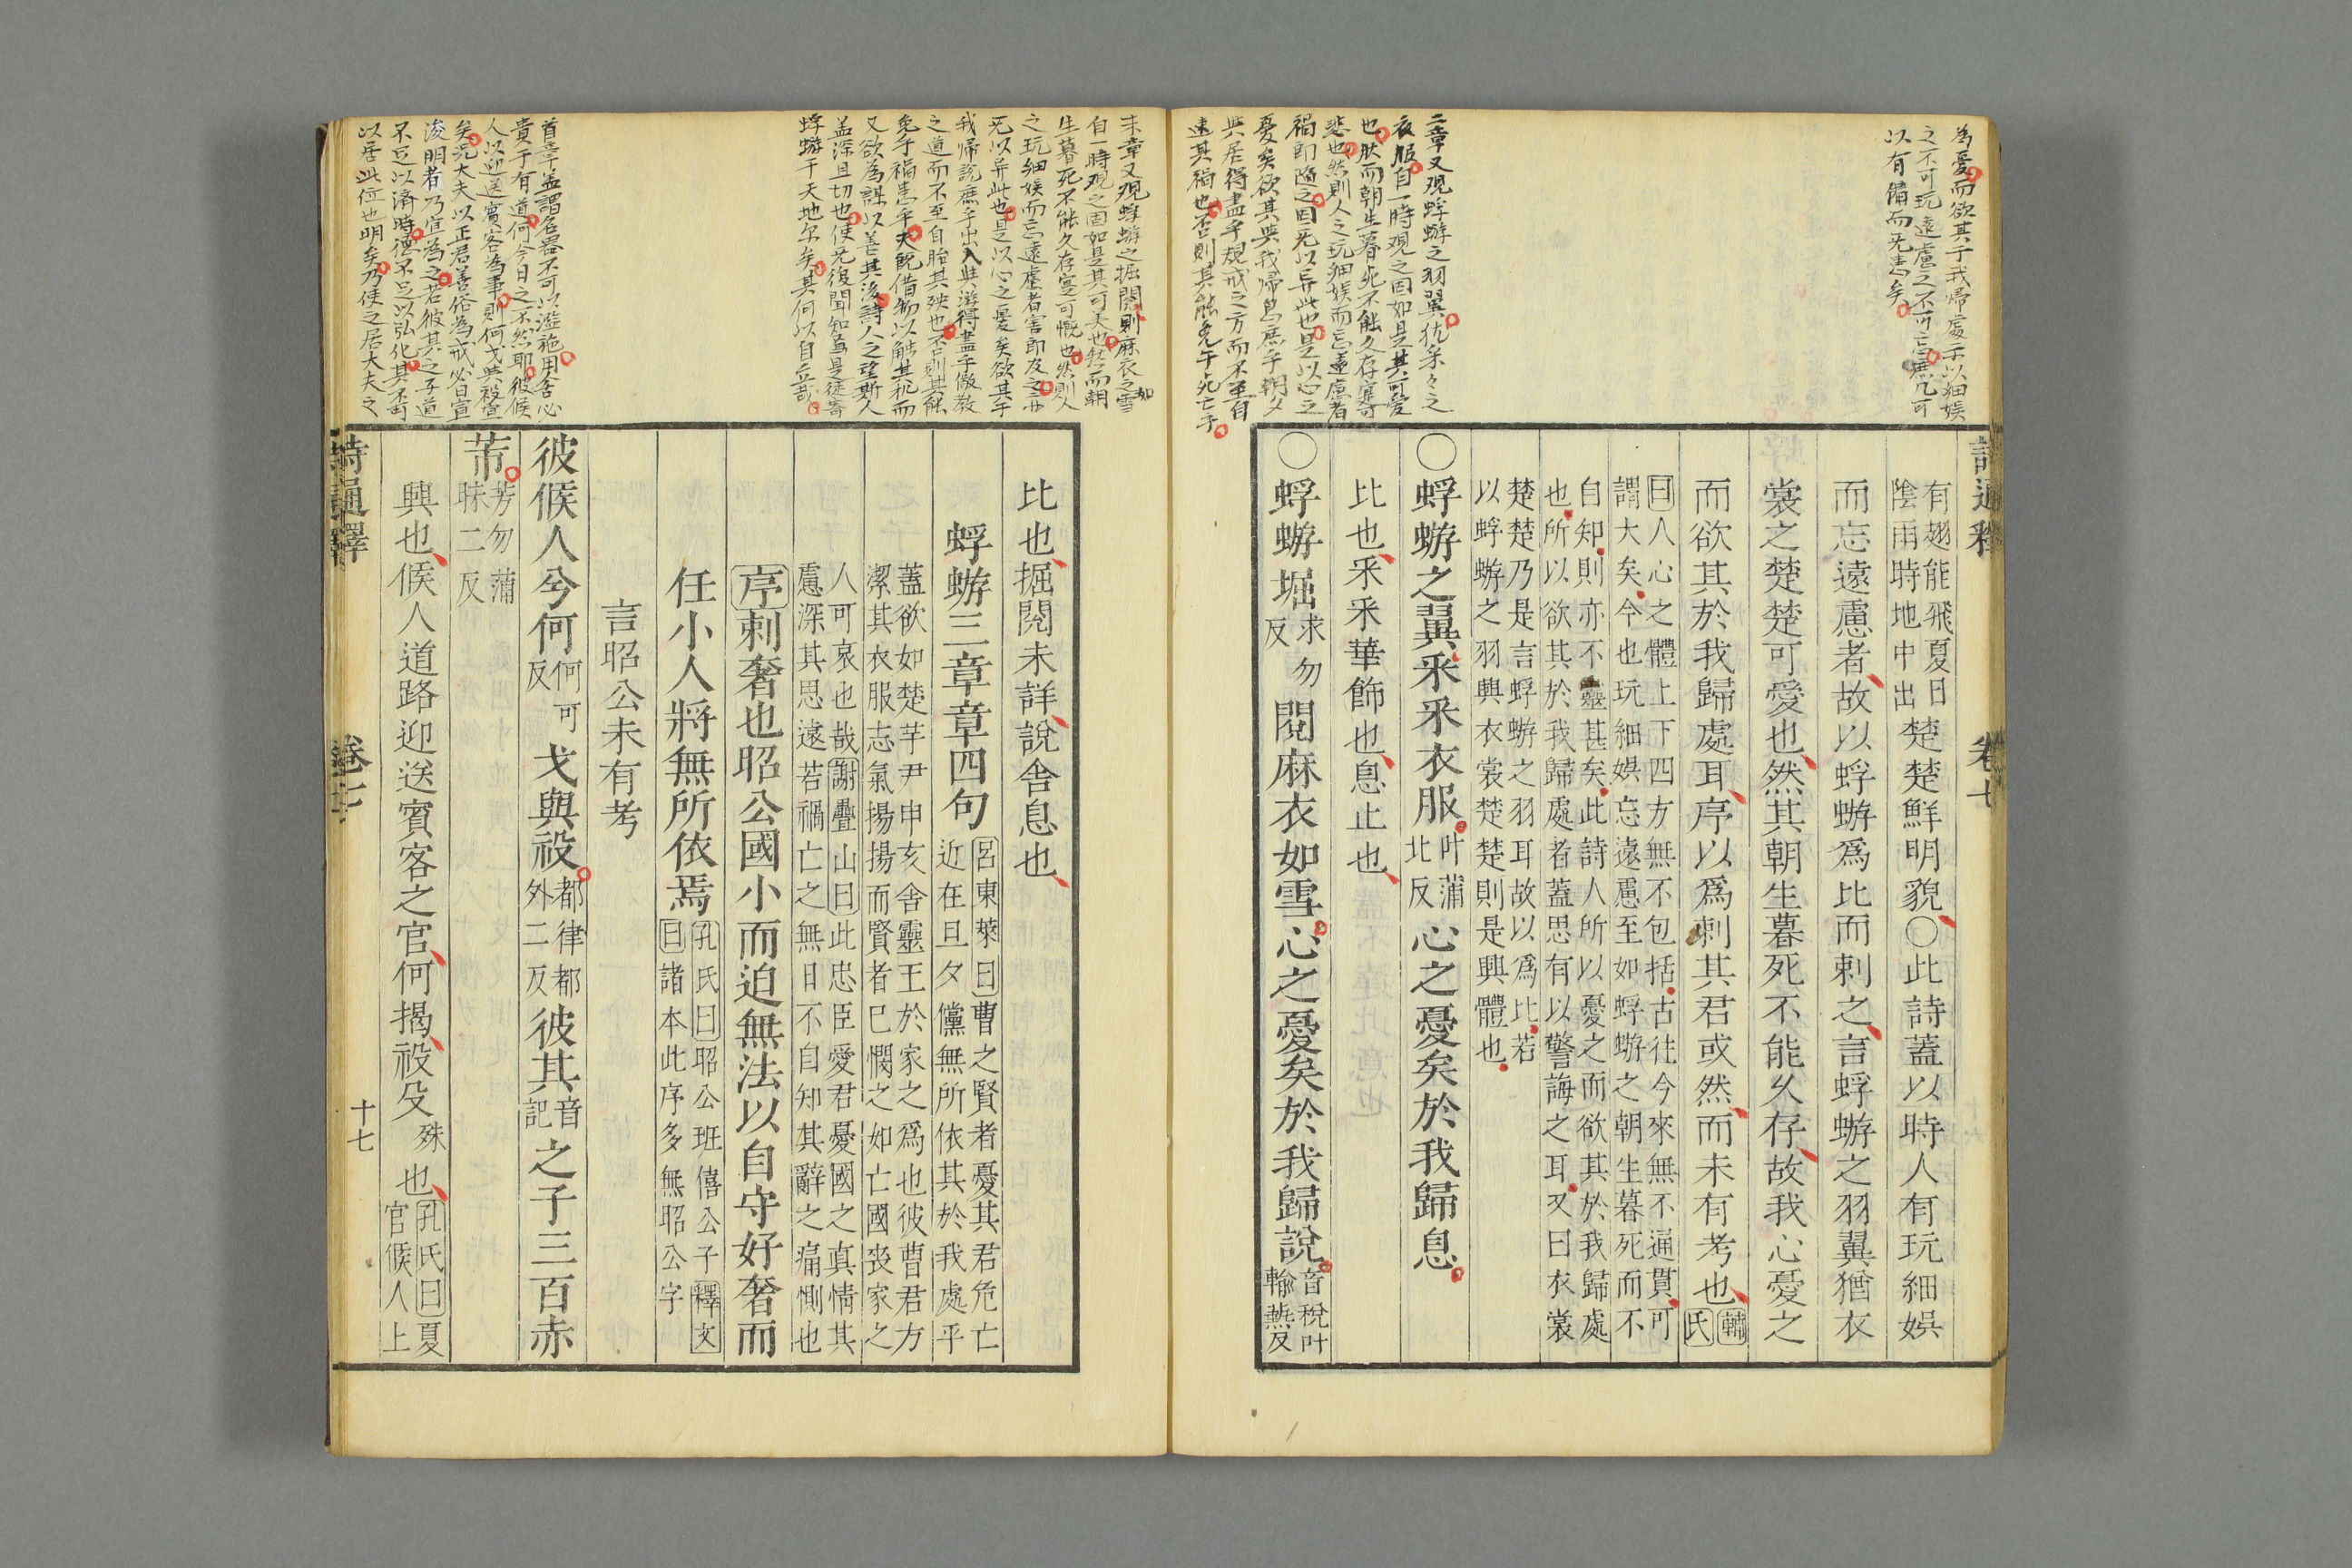 為憂而欲其于我歸處示以細娛
之不可玩遠慮之不可忘庶几可
以有備而无患矣
二章又現蜉蝣之羽翼犹采々之
衣服自一時观之固如是其可愛
也肰而朝生暮死不能久存寔可
悲也然則人之玩細娛而忘遠慮者
禍即隨之固无以异此也是以心之
憂矣欲其與我歸息庶乎朝夕
與居得盡乎規戒之方而不至自
速其禍也否則其能免于死亡乎
詩通釋
卷七
有翅能飛夏日
陰雨時地中出
楚楚鮮明貌○此詩蓋以時人有玩細娯
而忘遠慮者故以蜉蝣爲比而刺之言蜉蝣之羽翼猶衣
裳之楚楚可愛也然其朝生暮死不能乆存故我心憂之
而欲其於我歸處耳序以爲刺其君或然而未有考也
輔
氏
曰人心之體上下四方無不包括古往今來無不通貫可
謂大矣今也玩細娯忘遠慮至如蜉蝣之朝生暮死而不
自知則亦不靈甚矣此詩人所以憂之而欲其於我歸處
也所以欲其於我歸處者蓋思有以警誨之耳又曰衣裳
楚楚乃是言蜉蝣之羽耳故以爲比若
以蜉蝣之羽興衣裳楚楚則是興體也
○蜉蝣之翼采采衣服
叶蒲
北反
心之憂矣於我歸息
比也采采華飾也息止也
○蜉蝣堀
求勿
反
閱麻衣如雪心之憂矣於我歸說
音稅叶
輸爇反
末章又观蜉蝣之掘閱則麻衣之如雪
自一時观之固如是其可美也然而朝
生暮死不能久存寔可慨也然則人
之玩細娛而忘遠慮者害即及之亦
无以异此也是以心之憂矣欲其于
我歸說庶乎出入與遊得盡乎儆教
之道而不至自貽其殃也否則其能
免乎禍患乎夫旣借物以觧其㧞而
又欲為謀以善其後詩人之望斯人
盖深且切也使无復聞知焉是徒寄
蜉蝣于天地尔矣其何以自立哉
首章盖謂名器不可以濫施用舍必
貴于有道何今日之不然耶彼候
人以迎送賓客為事則何戈與祋宜
矣况大夫以正君善俗為戒必日宣
浚明者乃宜為之若彼其之子道
不足以済時德不足以弘化其不可
以居此位也明矣乃使之居大夫之
比也掘閱未詳說舍息也
蜉蝣三章章四句
呂東萊曰曹之賢者憂其君危亡
近在旦夕儻無所依其於我處平
蓋欲如楚芋尹申亥舍靈王於家之爲也彼曹君方
潔其衣服志氣揚揚而賢者已憫之如亡國喪家之
人可哀也哉謝疊山曰此忠臣愛君憂國之真情其
慮深其思遠若禍亡之無日不自知其辭之痛惻也
序刺奢也昭公國小而迫無法以自守好奢而
任小人將無所依焉
孔氏曰昭公班僖公子釋文
曰諸本此序多無昭公字
言昭公未有考
彼候人兮何
何可
反
戈與祋
都律都
外二反
彼其
音
記
之子三百赤
芾
芳勿蒲
昧二反
興也候人道路迎送賓客之官何揭祋殳
殊
也
孔氏曰夏
官候人上
詩通釋
卷七
十七